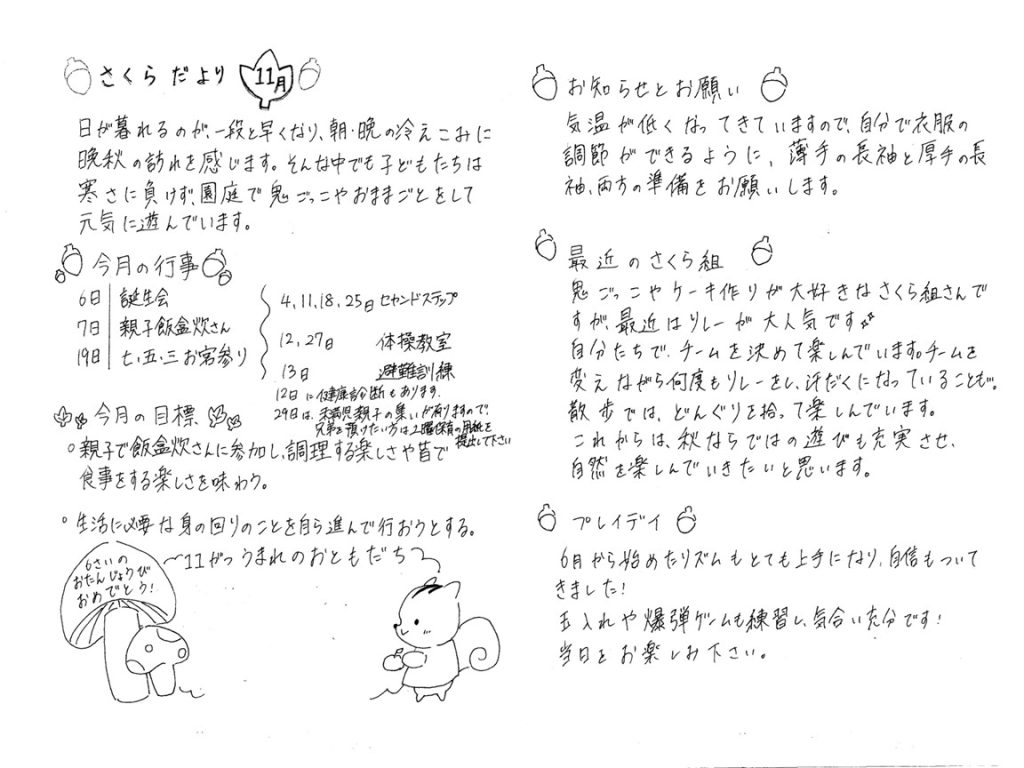 さくらだより 11月
日が暮れるのが、一段と早くなり、朝・晩の冷えこみに
晩秋の訪れを感じます。そんな中でも子どもたちは
寒さに負けず、園庭で鬼ごっこやおままごとをして
元気に遊んでいます。
今月の行事
6日 誕生会
7日 親子飯盒炊さん
19日 七、五、三お宮参り
4,11,18,25日 セカンドステップ
12,27日 体操教室
13日 避難訓練
12日に健康診断もあります。
29日は、 親子の集いが有りますので、
兄弟を預けたい方は土曜保育の用紙を
提出して下さい
今月の目標
○親子で飯盒炊さんに参加し、調理する楽しさや皆で
食事をする楽しさを味わう。
○生活に必要な身の回りのことを自ら進んで行おうとする。
〜11がつうまれのおともだち〜
6さいの
おたんじょうび
おめでとう!
お知らせとお願い
気温が低くなってきていますので、自分で衣服の
調節ができるように、薄手の長袖と厚手の長
袖、両方の準備をお願いします。
最近のさくら組
鬼ごっこやケーキ作りが大好きなさくら組さんで
すが、最近はリレーが大人気です
自分たちで、チームを決めて楽しんでいます。チームを
変えながら何度もリレーをし、汗だくになっていることも。
散歩では、どんぐりを拾って楽しんでいます。
これからは、秋ならではの遊びも充実させ、
自然を楽しんでいきたいと思います。
プレイデイ
6月から始めたリズムもとても上手になり、自信もついて
きました!
玉入れや爆弾ゲームも練習し、気合い充分です!
当日をお楽しみ下さい。